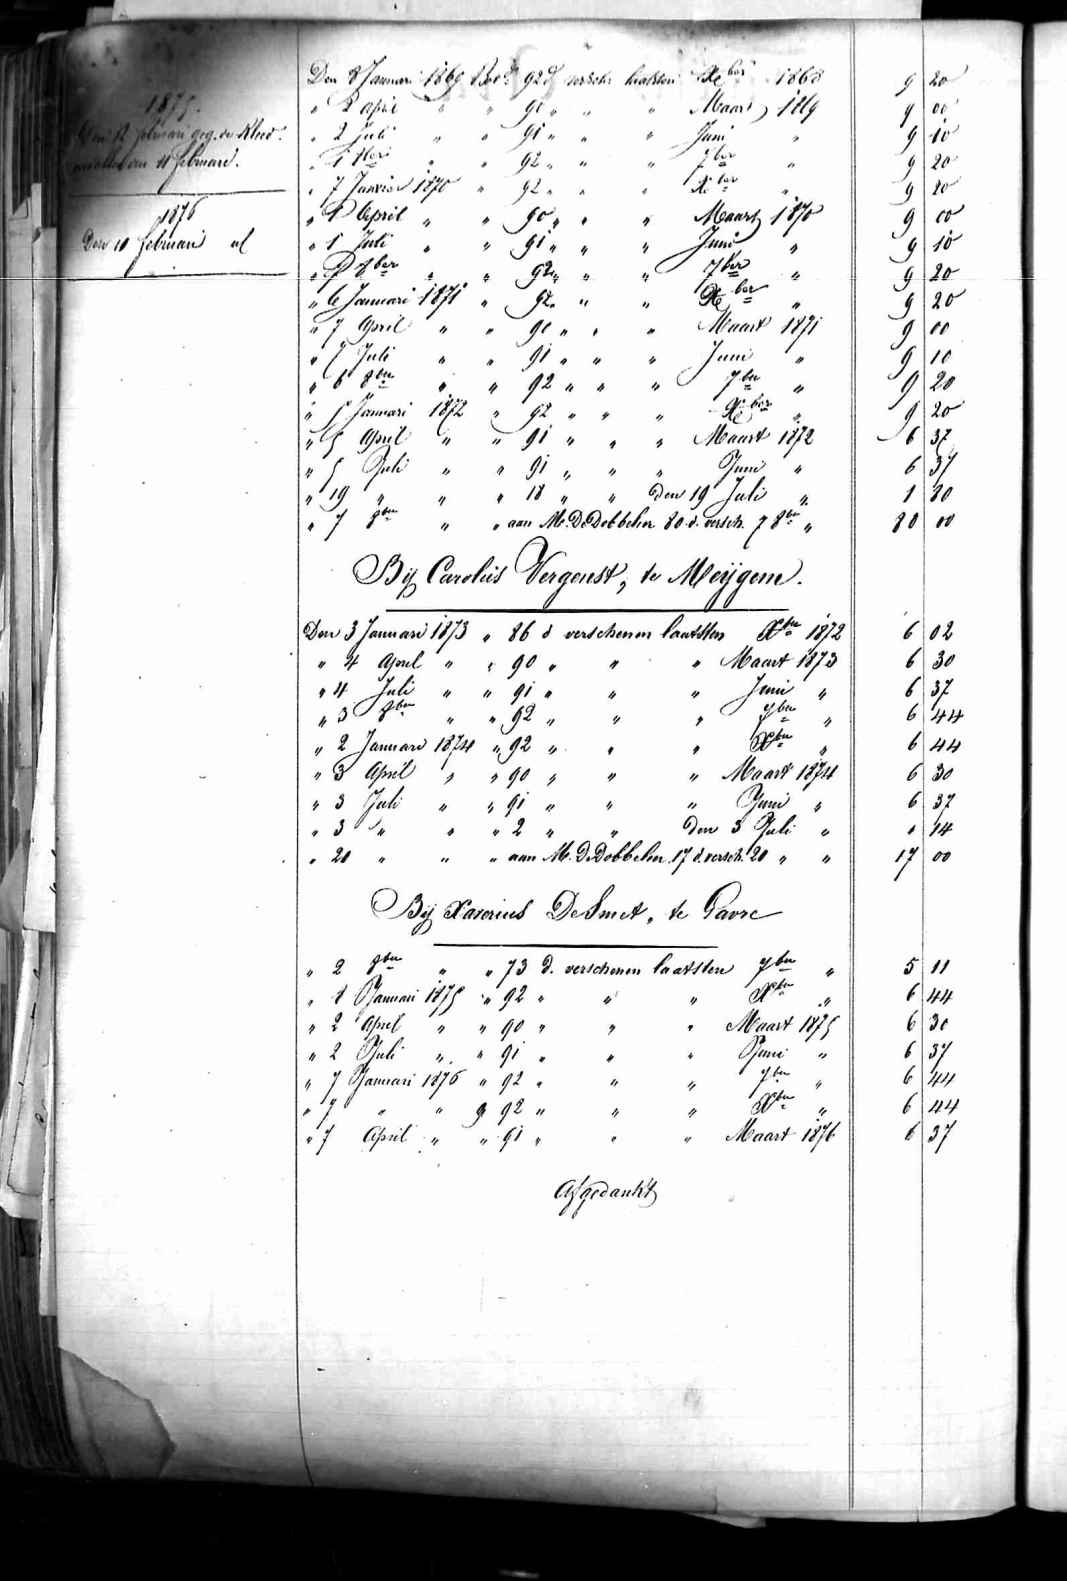 1875.
Den 12 februari geg. de kleed.
den 11 februari.
1876
Den 10 februari id
Den 8 Januari 1869 92 d versch. laatsten Xber 1868 9 20
" 2 april " " 90 " " " Maart 1869 9 00
" 2 Juli " " 91 " " " Juni " 9 10
" 1 8ber " " 92 " " " 7ber " 9 20
" 7 Janvier 1870 " 92 " " " Xber " 9 20
" 1 April " " 90 " " " Maart 1870 9 00
" 1 Juli " " 91 " " " Juni " 9 10
" 7 8ber " " 92 " " " 7ber " 9 20
" 6 Januari 1871 " 92 " " " Xber " 9 20
" 7 April " " 90 " " " Maart 1871 9 00
" 7 Juli " " 91 " " " Juni " 9 10
" 6 8ber " " 92 " " " 7ber " 9 20
" 5 Januari 1872 " 92 " " " Xber " 9 20
" 5 April " " 91 " " " Maart 1872 6 37
" 5 Juli " " 91 " " " Juni " 6 37
" 19 " " " 18 " " den 19 Juli " 1 80
" 7 8ber " " aan M. De Dobbeler 80 d. versch. 7 8ber " 80 00
Bij Carolus Vergeust, te Meijgem.
Den 3 Januari 1873 " 86 d verschenen laatsten Xber 1872 6 02
" 4 April " " 90 " " " Maart 1873 6 30
" 4 Juli " " 91 " " " Juni " 6 37
" 3 8ber " " 92 " " " 7ber " 6 44
" 2 Januari 1874 " 92 " " " Xber " 6 44
" 3 April " " 90 " " " Maart 1874 6 30
" 3 Juli " " 91 " " " Juni " 6 37
" 3 " " " 2 " " den 3 Juli " " 14
" 20 " " " aan M. De Dobbeler 17 d. versch. 20 " " 17 00
Bij Xaverius De Smet, te Gavre
" 2 8ber " " 73 d. verschenen laatsten 7ber " 5 11
" 1 Januari 1875 " 92 " " " Xber " 6 44
" 2 April " " 90 " " " Maart 1875 6 30
" 2 Juli " " 91 " " " Juni " 6 37
" 7 Januari 1876 " 92 " " " 7ber " 6 44
" 7 " " " 92 " " " Xber " 6 44
" 7 April " " 91 " " " Maart 1876 6 37
Afgedankt